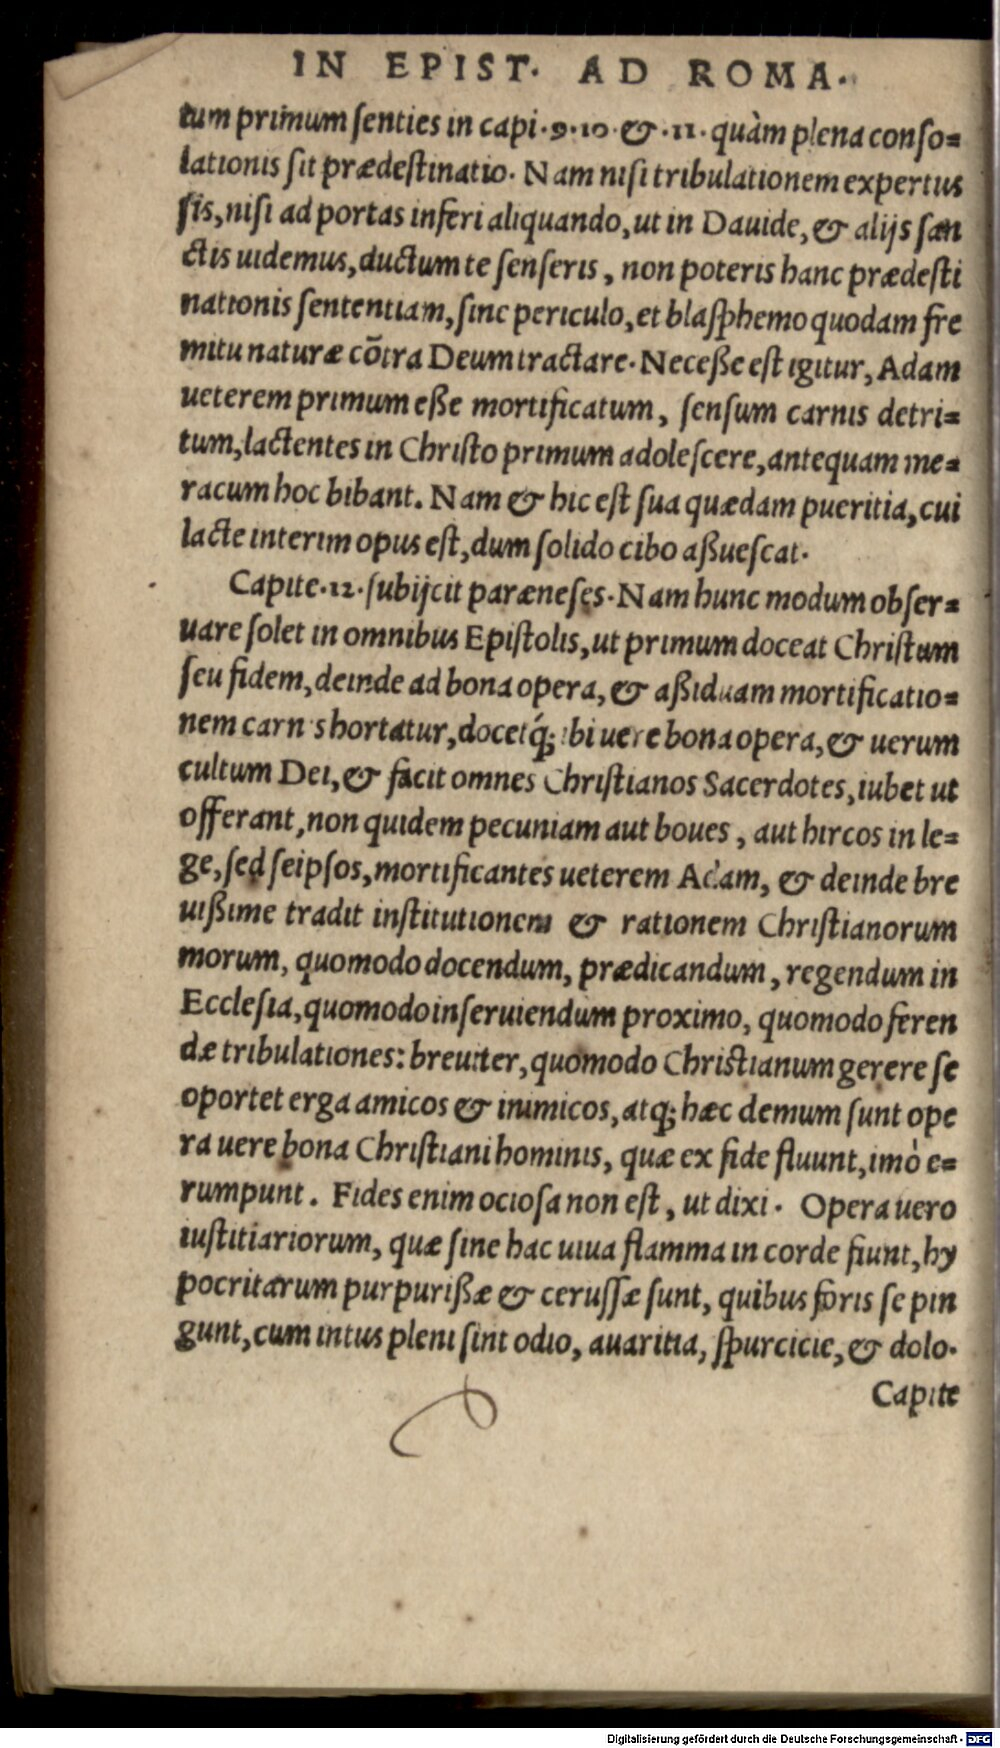 IN EPIST. AD ROMA.
tum primum ſenties in capi·9·10·&·11·quàm plena conſo=
lationis ſit prædeſtinatio. Nam niſi tribulationem expertus
ſis, niſi ad portas inferi aliquando, ut in Dauide, & alijs ſan
ctis uidemus, ductum te ſenſeris, non poteris hanc prædeſti
nationis ſententiam, ſine periculo, et blaſphemo quodam fre
mitu naturæ cõtra Deum tractare. Neceße eſt igitur, Adam
ueterem primum eße mortificatum, ſenſum carnis detri=
tum, lactentes in Chriſto primum adoleſcere, antequam me=
racum hoc bibant. Nam & hic eſt ſua quædam pueritia, cui
lacte interim opus eſt, dum ſolido cibo aßueſcat.
Capite·12·ſubijcit paræneſes. Nam hunc modum obſer=
uare ſolet in omnibus Epiſtolis, ut primum doceat Chriſtum
ſeu fidem, deinde ad bona opera, & aßiduam mortificatio=
nem carnis hortatur, docetq́; ibi uere bona opera, & uerum
cultum Dei, & facit omnes Chriſtianos Sacerdotes, iubet ut
offerant, non quidem pecuniam aut boues, aut hircos in le=
ge, ſed ſeipſos, mortificantes ueterem Adam, & deinde bre
uißime tradit inſtitutionem & rationem Chriſtianorum
morum, quomodo docendum, prædicandum, regendum in
Eccleſia, quomodo inſeruiendum proximo, quomodo feren
dæ tribulationes: breuiter, quomodo Chriſtianum gerere ſe
oportet erga amicos & inimicos, atq; hæc demum ſunt ope
ra uere bona Chriſtiani hominis, quæ ex fide fluunt, imò e=
rumpunt. Fides enim ocioſa non eſt, ut dixi. Opera uero
iuſtitiariorum, quæ ſine hac uiua flamma in corde fiunt, hy
pocritarum purpurißæ & ceruſſæ ſunt, quibus foris ſe pin
gunt, cum intus pleni ſint odio, auaritia, ſpurcicie, & dolo.
Capite
Digitalisierung gefördert durch die Deutsche Forschungsgemeinschaft - DFG